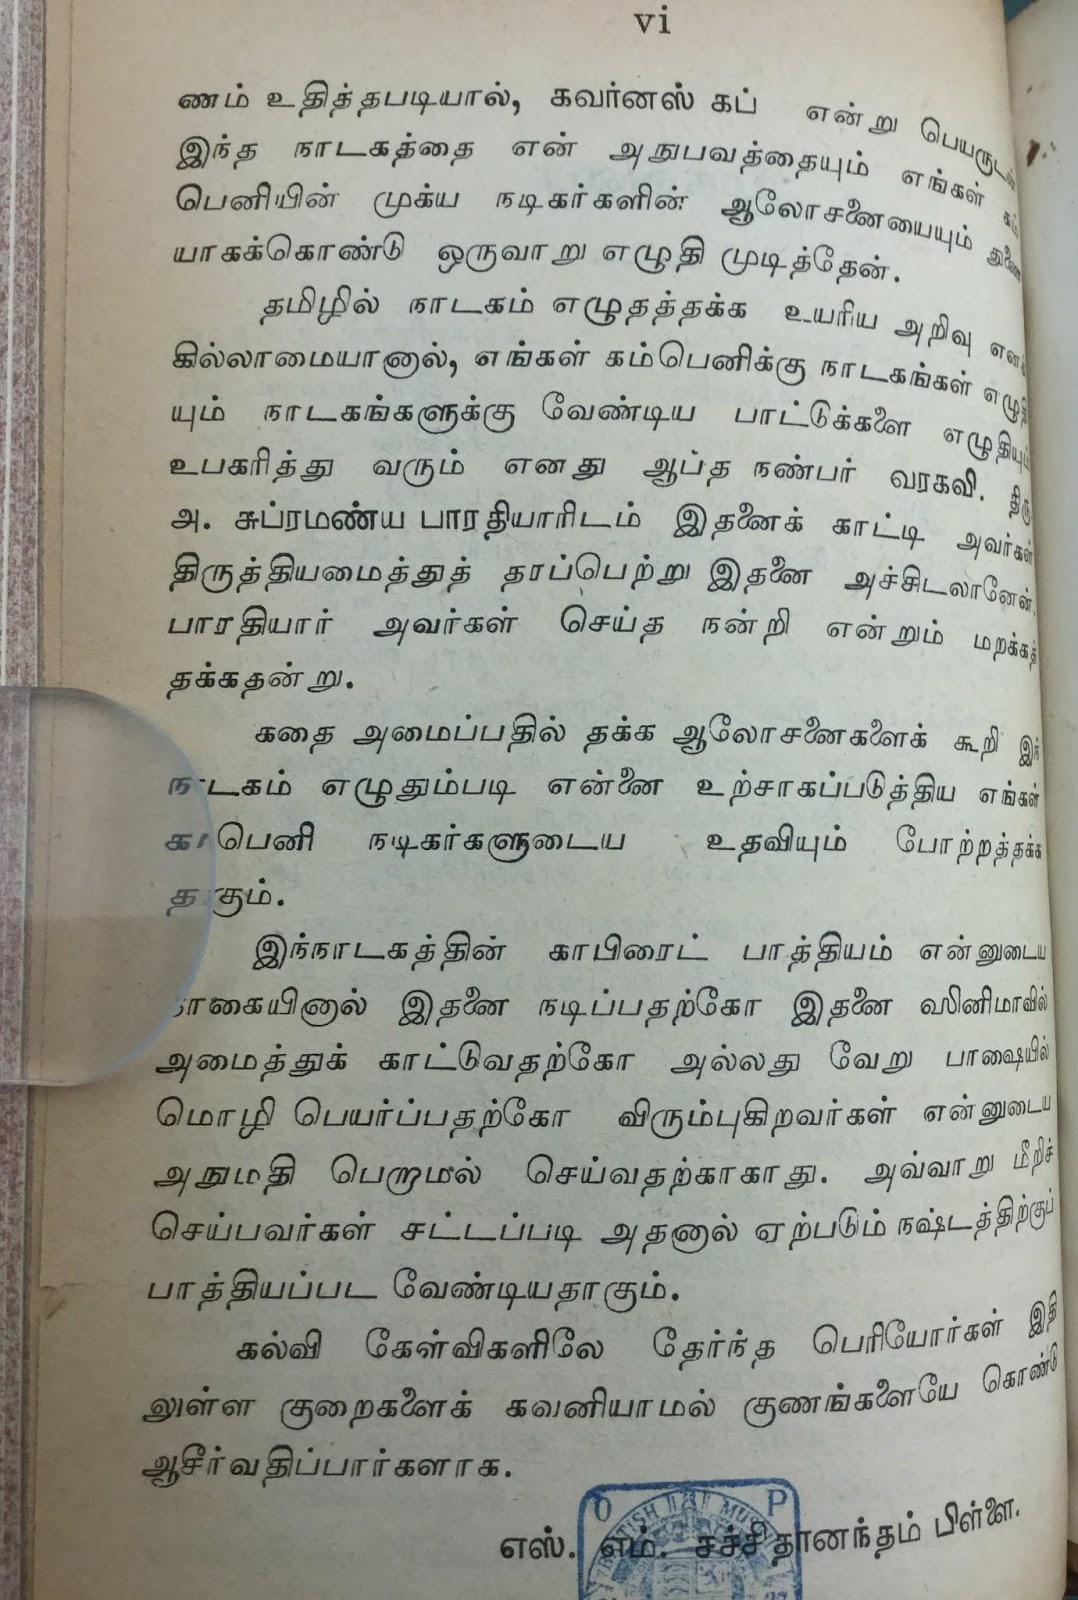 vi
ணம் உதித்தபடியால், கவர்னஸ் கப் என்று பெயருடன்
இந்த நாடகத்தை என் அநுபவத்தையும் எங்கள் கம்
பெனியின் முக்ய நடிகர்களின் ஆலோசனையையும் துணை
யாகக்கொண்டு ஒருவாறு எழுதி முடித்தேன்.
தமிழில் நாடகம் எழுதத்தக்க உயரிய அறிவு எனக்
கில்லாமையானால், எங்கள் கம்பெனிக்கு நாடகங்கள் எழுதி
யும் நாடகங்களுக்கு வேண்டிய பாட்டுக்களை எழுதியும்
உபகரித்து வரும் எனது ஆப்த நண்பர் வரகவி. திரு
அ. சுப்ரமண்ய பாரதியாரிடம் இதனைக் காட்டி அவர்கள்
திருத்தியமைத்துத் தரப்பெற்று இதனை அச்சிடலானேன்.
பாரதியார் அவர்கள் செய்த நன்றி என்றும் மறக்கத்
தக்கதன்று.
கதை அமைப்பதில் தக்க ஆலோசனைகளைக் கூறி இந்
நாடகம் எழுதும்படி என்னை உற்சாகப்படுத்திய எங்கள்
கம்பெனி நடிகர்களுடைய உதவியும் போற்றத்தக்க
தாகும்.
இந்நாடகத்தின் காபிரைட் பாத்தியம் என்னுடைய
தாகையினால் இதனை நடிப்பதற்கோ இதனை ஸினிமாவில்
அமைத்துக் காட்டுவதற்கோ அல்லது வேறு பாஷையில்
மொழி பெயர்ப்பதற்கோ விரும்புகிறவர்கள் என்னுடைய
அநுமதி பெறாமல் செய்வதற்காகாது. அவ்வாறு மீறிச்
செய்பவர்கள் சட்டப்படி அதனால் ஏற்படும் நஷ்டத்திற்குப்
பாத்தியப்பட வேண்டியதாகும்.
கல்வி கேள்விகளிலே தேர்ந்த பெரியோர்கள் இதி
லுள்ள குறைகளைக் கவனியாமல் குணங்களையே கொண்டு
ஆசீர்வதிப்பார்களாக.
எஸ். எம். சச்சிதானந்தம் பிள்ளை.
O P
BRITISH